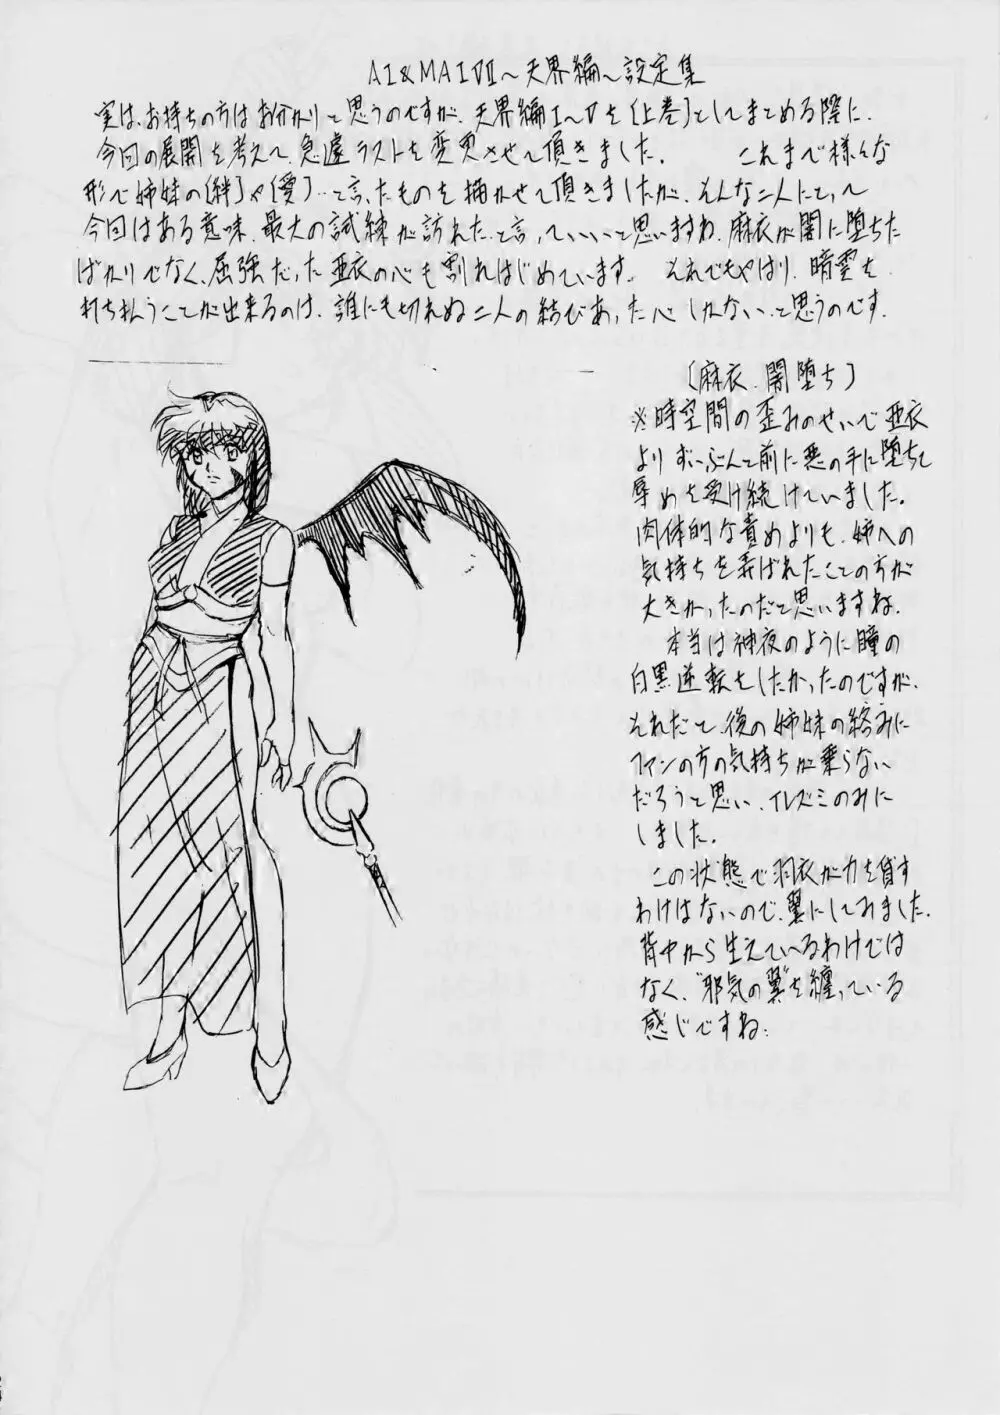 AI&MAI VII～天界編～設定集
実は、お持ちの方はお分かりと思うのですが、天界編I～Vを〔上巻〕としてまとめる際に、
今回の展開を考えて、急遽ラストを変更させて頂きました。 これまで様々な
形で姉妹の〔絆〕や〔愛〕…と言ったものを描かせて頂きましたが、そんな二人にとって
今回はある意味、最大の試練が訪れたと言っていいと思いますね、麻衣が闇に堕ちた
ばかりでなく、屈強だった亜衣の心も割れはじめています。 それでもやはり、暗雲を
打ち払うことが出来るのは、誰にも切れぬ二人の結びあった心しかない、と思うのです。
〔麻衣、闇堕ち〕
※時空間の歪みのせいで亜衣
よりずいぶんと前に悪の手に堕ちて
辱めを受け続けていました。
肉体的な責めよりも、姉への
気持ちを弄ばれたことの方が
大きかったのだと思いますね。
本当は神夜のように瞳の
白黒逆転をしたかったのですが、
それだと、後の姉妹の絡みに
ファンの方の気持ちが乗らない
だろうと思い、イレズミのみに
しました。
この状態で羽衣が力を貸す
わけはないので、翼にしてみました。
背中から生えているわけでは
なく、“邪気の翼”を纏っている
感じですね；